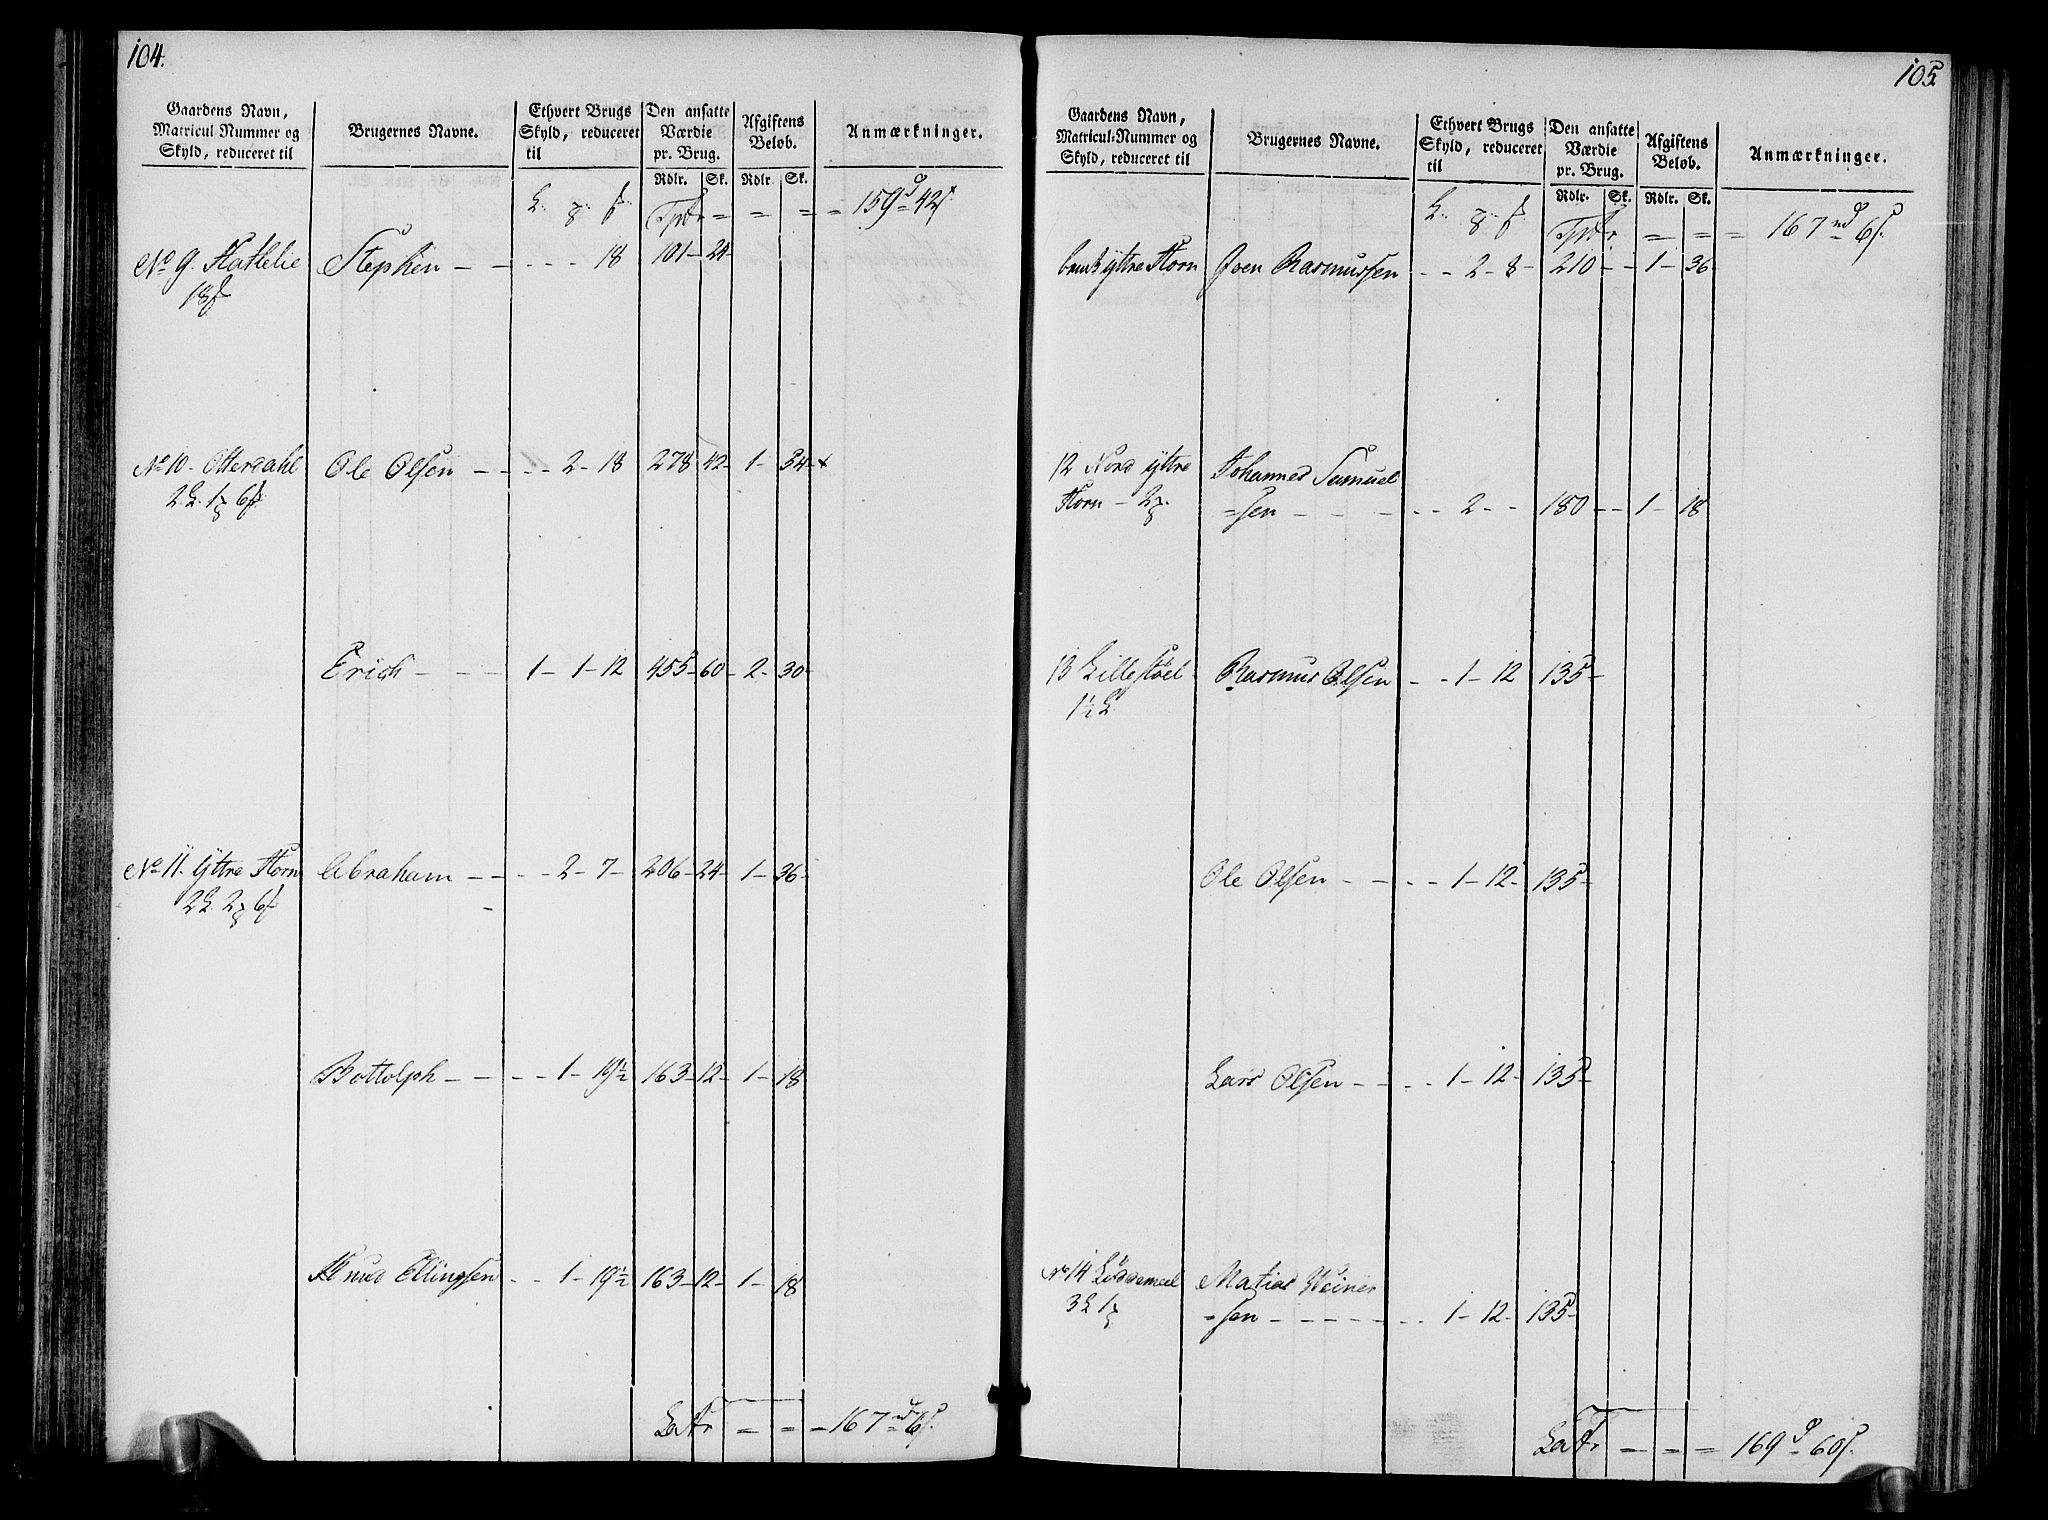 104.
Gaardens Navn, Matricul Nummer og Skyld, reduceret til
Brugernes Navne.
Ethvert Brugs Skyld, reduceret til
Den ansatte Værdie pr. Brug.
Afgiftens Beløb.
Anmærkninger.
Rdlr. Sk. Rdlr. Sk.
Tpr = = = = 159 d 42 s
No 9. Hattelie Stephen - - - - - 18 101 - 24 -
18 s
No 10 - Otterdahl Ole Olsen - - - - 2 - 18 278 - 42 - 1 - 54 - x
2 L. 1 6 s
Erich - - - 1 - 1 - 12 455 - 60 - 2 - 30 -
No 11 - Yttre Horn Abraham - - - - 2 - 7 - 206 - 24 - 1 - 36 -
2 L. 2 6 s
Bottolph - - - - 1 - 19½ 163 - 12 - 1 - 18
Knud Ellingsen - - 1 - 19½ 163 - 12 - 1 - 18
Latr = = - 167 d 6 s.
105
Gaardens Navn, Matricul-Nummer og Skyld, reduceret til
Brugernes Navne.
Ethvert Brugs Skyld, reduceret til
Den ansatte Værdie pr. Brug.
Afgiftens Beløb.
Anmærkninger.
Rdlr. Sk. Rdlr. Sk.
Tpr = = = 167 d 6 s.
Yttre Horn Iven Rasmussen - - 2 - 8 - 210 - - 1 - 36 -
12 Nord Yttre Johannes Samuel
Horn - 2 =sen - - - - - 2 - - 180 - - 1 - 18
13 Lillestöel - Rasmus Olsen - - 1 - 12 135 -
1½ L
Ole Olsen - - - - 1 - 12 - 135 -
Lars Olsen - - - - 1 - 12 - 135 -
No 14 Matias Steiner
3 L 1 =sen - - - - - - - 1 - 12 - 135 -
Latr - - = 169 d 60 s.